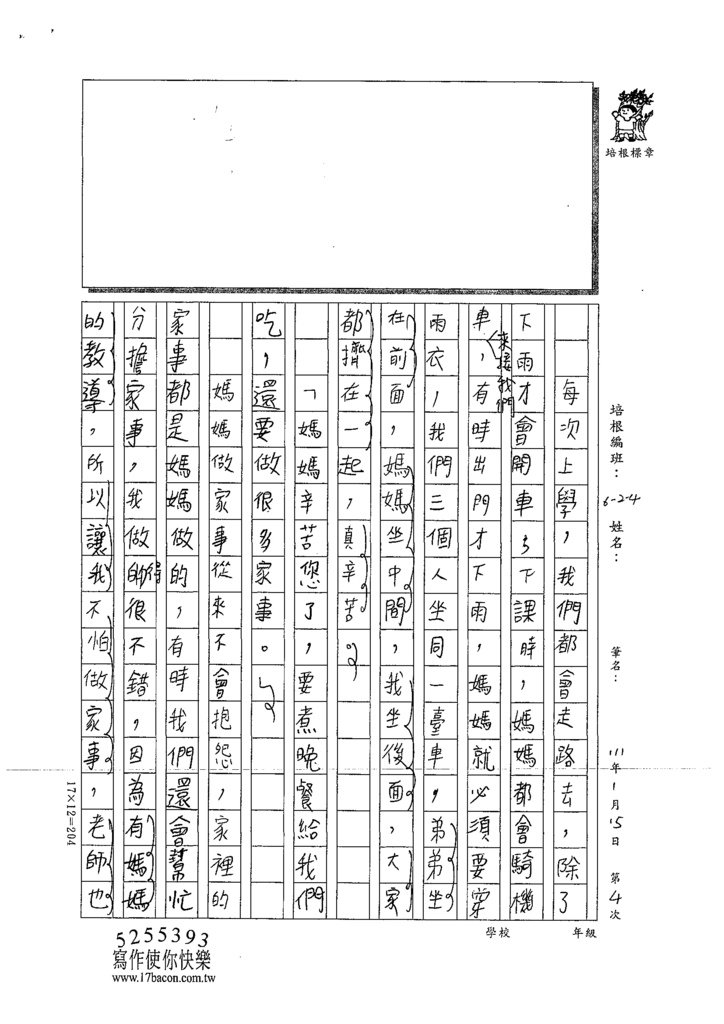 培根標章
培根編班：6-2-4 姓名： 筆名： 111年1月15日 第4次
學校 年級
每次上學，我們都會走路去，除了
下雨才會開車；下課時，媽媽都會騎機
車來接我們，有時出門才下雨，媽媽就必須要穿
雨衣，我們三個人坐同一臺車，弟弟坐
在前面，媽媽坐中間，我坐後面，大家
都擠在一起，真辛苦。
「媽媽辛苦您了，要煮晚餐給我們
吃，還要做很多家事。」
媽媽做家事從來不會抱怨，家裡的
家事都是媽媽做的，有時我們還會幫忙
分擔家事，我做得很不錯，因為有媽媽
的教導，所以讓我不怕做家事，老師也
17×12=204
5255393
寫作使你快樂
www.17bacon.com.tw